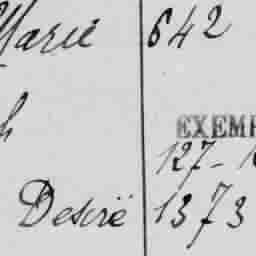 Marie 642
h
EXEMP
127-1
Desiré 1373